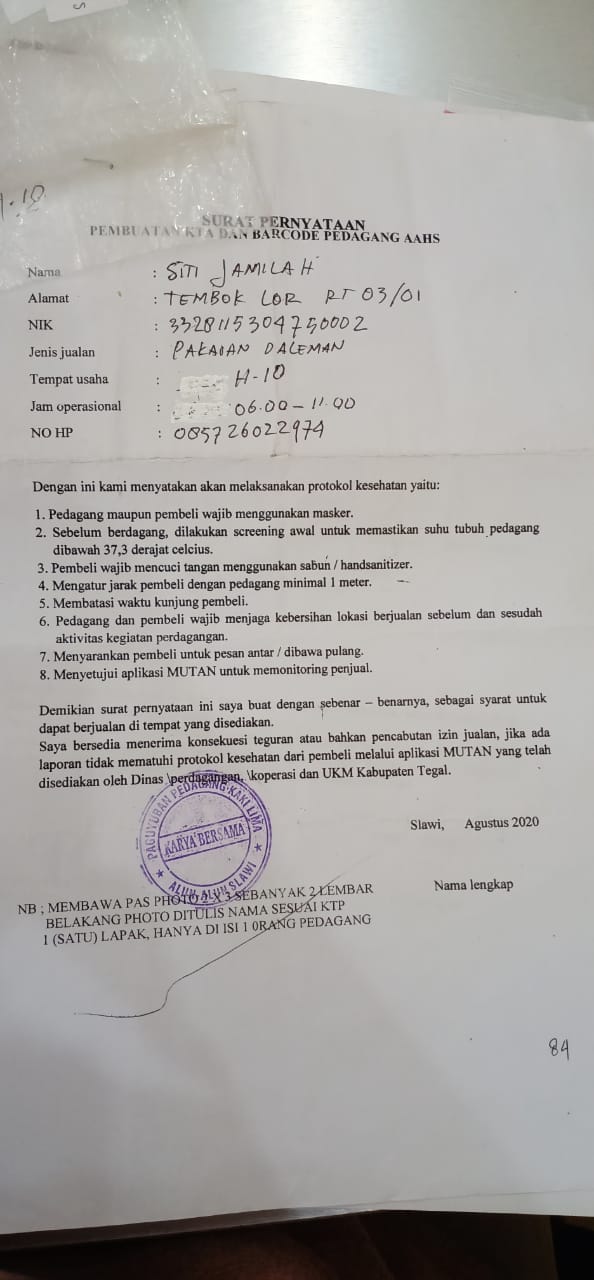 SURAT PERNYATAAN
PEMBUATAN KTA DAN BARCODE PEDAGANG AAHS
Nama : SITI JAMILAH
Alamat : TEMBOK LOR RT 03/01
NIK : 3328115304750002
Jenis jualan : PAKAIAN DALEMAN
Tempat usaha : H-10
Jam operasional : 06.00 - 11.00
NO HP : 085726022974
Dengan ini kami menyatakan akan melaksanakan protokol kesehatan yaitu:
1. Pedagang maupun pembeli wajib menggunakan masker.
2. Sebelum berdagang, dilakukan screening awal untuk memastikan suhu tubuh pedagang
dibawah 37,3 derajat celcius.
3. Pembeli wajib mencuci tangan menggunakan sabun / handsanitizer.
4. Mengatur jarak pembeli dengan pedagang minimal 1 meter.
5. Membatasi waktu kunjung pembeli.
6. Pedagang dan pembeli wajib menjaga kebersihan lokasi berjualan sebelum dan sesudah
aktivitas kegiatan perdagangan.
7. Menyarankan pembeli untuk pesan antar / dibawa pulang.
8. Menyetujui aplikasi MUTAN untuk memonitoring penjual.
Demikian surat pernyataan ini saya buat dengan sebenar – benarnya, sebagai syarat untuk
dapat berjualan di tempat yang disediakan.
Saya bersedia menerima konsekuesi teguran atau bahkan pencabutan izin jualan, jika ada
laporan tidak mematuhi protokol kesehatan dari pembeli melalui aplikasi MUTAN yang telah
disediakan oleh Dinas \perdagangan, \koperasi dan UKM Kabupaten Tegal.
PAGUYUBAN PEDAGANG KAKI LIMA
KARYA BERSAMA
ALUN ALUN SLAWI
Slawi, Agustus 2020
Nama lengkap
NB ; MEMBAWA PAS PHOTO 2 X 3 SEBANYAK 2 LEMBAR
BELAKANG PHOTO DITULIS NAMA SESUAI KTP
1 (SATU) LAPAK, HANYA DI ISI 1 0RANG PEDAGANG
84